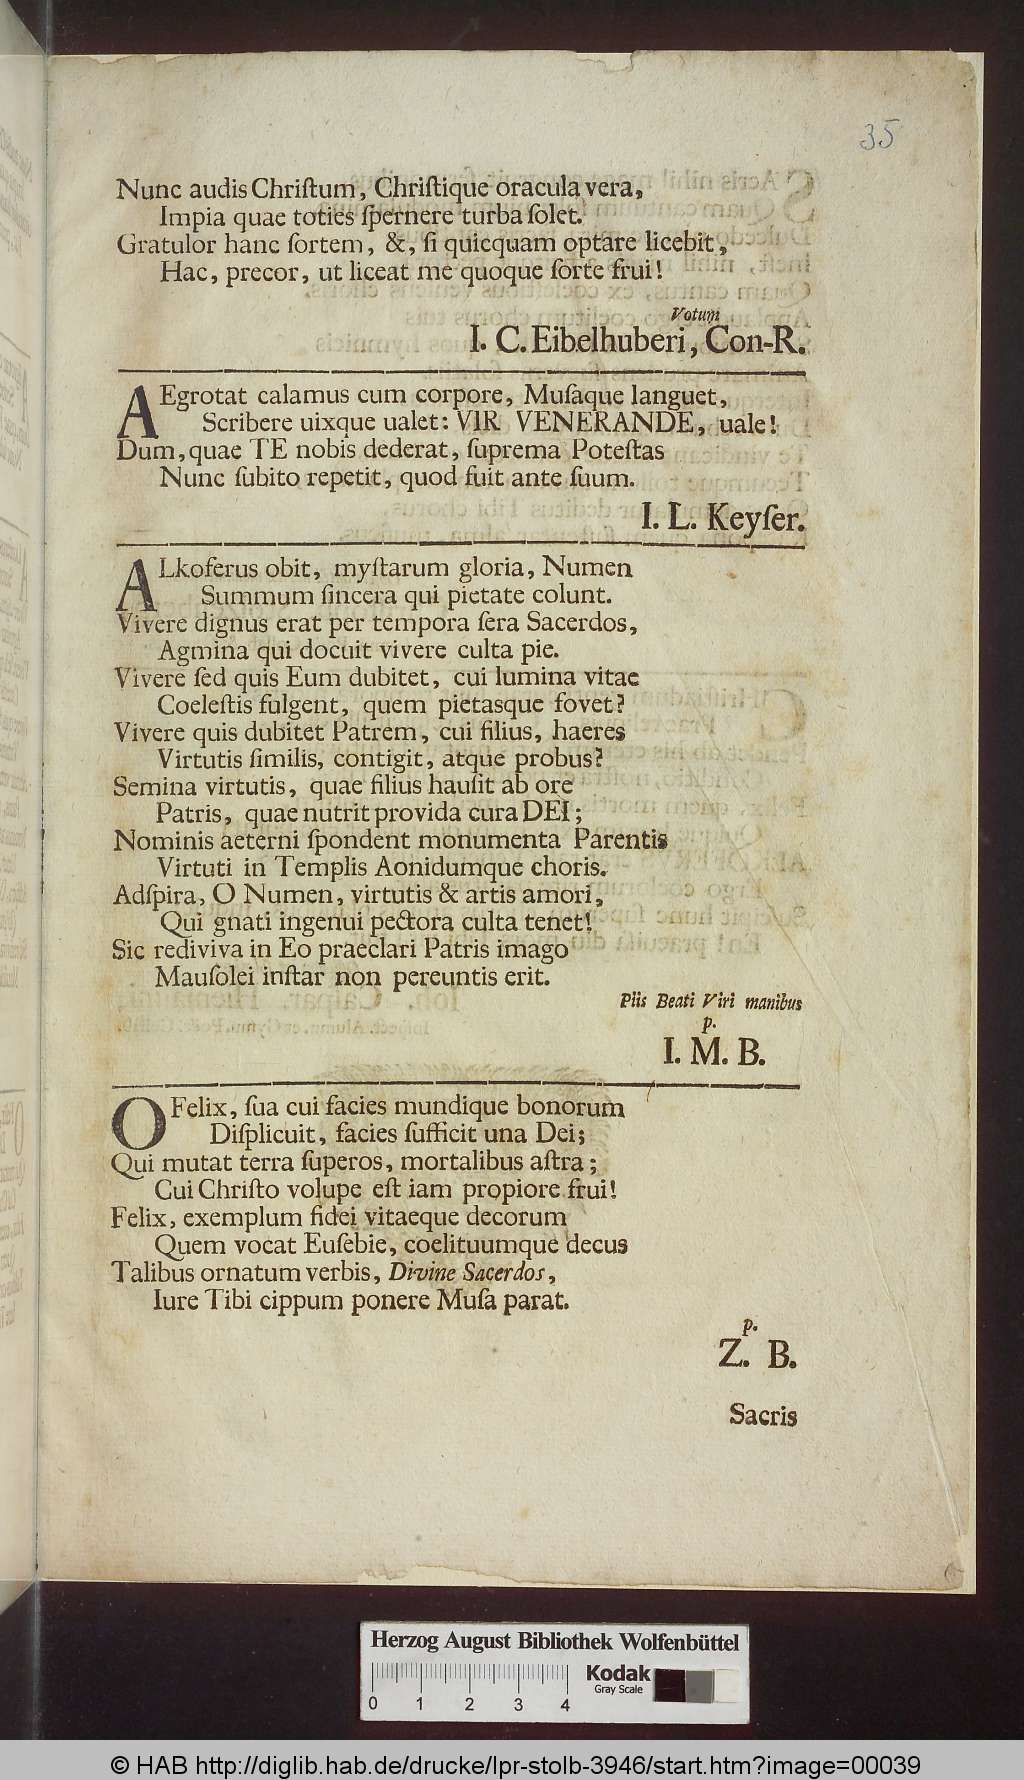 35
Nunc audis Chriſtum, Chriſtique oracula vera,
Impia quae toties ſpernere turba ſolet.
Gratulor hanc ſortem, &, ſi quicquam optare licebit,
Hac, precor, ut liceat me quoque ſorte frui!
Votum
I. C. Eibelhuberi, Con-R.
AEgrotat calamus cum corpore, Muſaque languet,
Scribere uixque ualet: VIR VENERANDE, uale!
Dum, quae TE nobis dederat, ſuprema Poteſtas
Nunc ſubito repetit, quod fuit ante ſuum.
I. L. Keyſer.
ALkoferus obit, myſtarum gloria, Numen
Summum ſincera qui pietate colunt.
Vivere dignus erat per tempora ſera Sacerdos,
Agmina qui docuit vivere culta pie.
Vivere ſed quis Eum dubitet, cui lumina vitae
Coeleſtis fulgent, quem pietasque fovet?
Vivere quis dubitet Patrem, cui filius, haeres
Virtutis ſimilis, contigit, atque probus?
Semina virtutis, quae filius hauſit ab ore
Patris, quae nutrit provida cura DEI;
Nominis aeterni ſpondent monumenta Parentis
Virtuti in Templis Aonidumque choris.
Adſpira, O Numen, virtutis & artis amori,
Qui gnati ingenui pectora culta tenet!
Sic rediviva in Eo praeclari Patris imago
Mauſolei inſtar non pereuntis erit.
Piis Beati Viri manibus
p.
I. M. B.
O Felix, ſua cui facies mundique bonorum
Diſplicuit, facies ſufficit una Dei;
Qui mutat terra ſuperos, mortalibus aſtra;
Cui Chriſto volupe eſt iam propiore frui!
Felix, exemplum fidei vitaeque decorum
Quem vocat Euſebie, coelituumque decus
Talibus ornatum verbis, Divine Sacerdos,
Iure Tibi cippum ponere Muſa parat.
p.
Z. B.
Sacris
Herzog August Bibliothek Wolfenbüttel
0 1 2 3 4
Kodak
Gray Scale
© HAB http://diglib.hab.de/drucke/lpr-stolb-3946/start.htm?image=00039